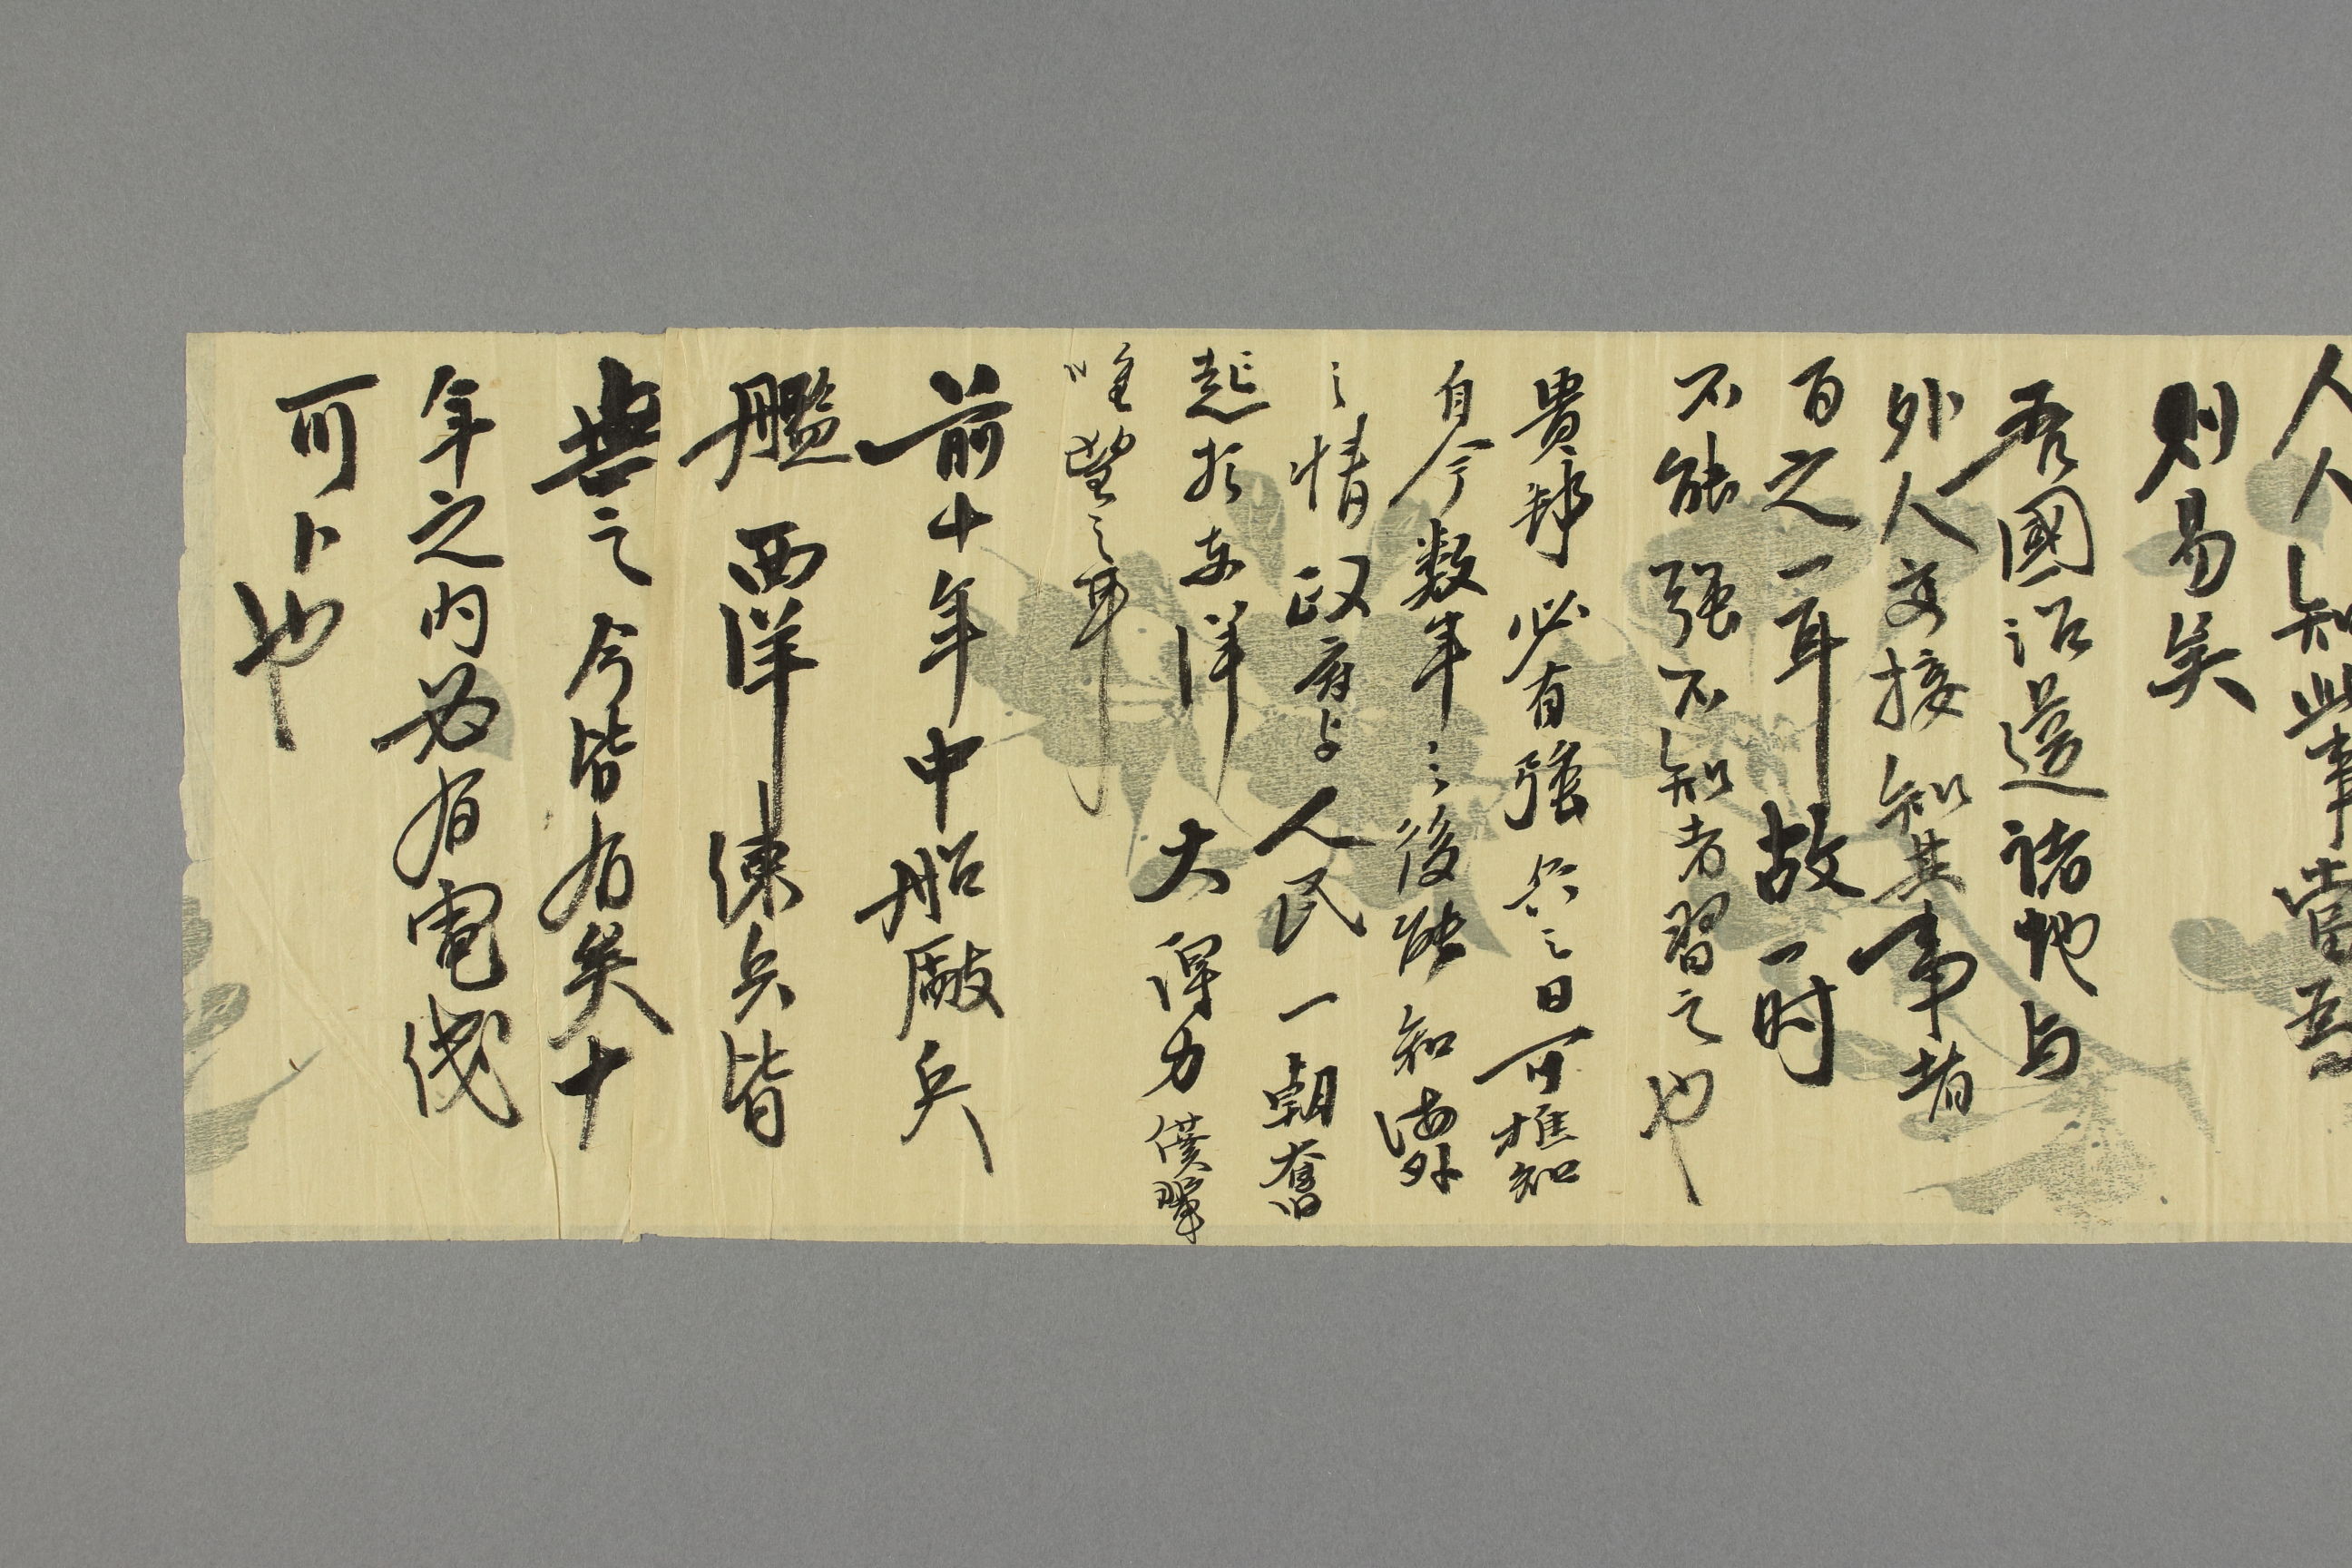 人人知此事當吾
則易矣
吾國沿邊諸地与
外人交接知其事者
百之一耳故一时
不能强不知者習之也
貴邦必有强兵之日可推知
自今数年之後能知海外
之情政府与人民一朝奮
起於东洋大得力僕輩
唯望之耳
前十年中船廠兵
艦西洋練兵皆
無之今皆有矣十
年之内必有電线
可卜也